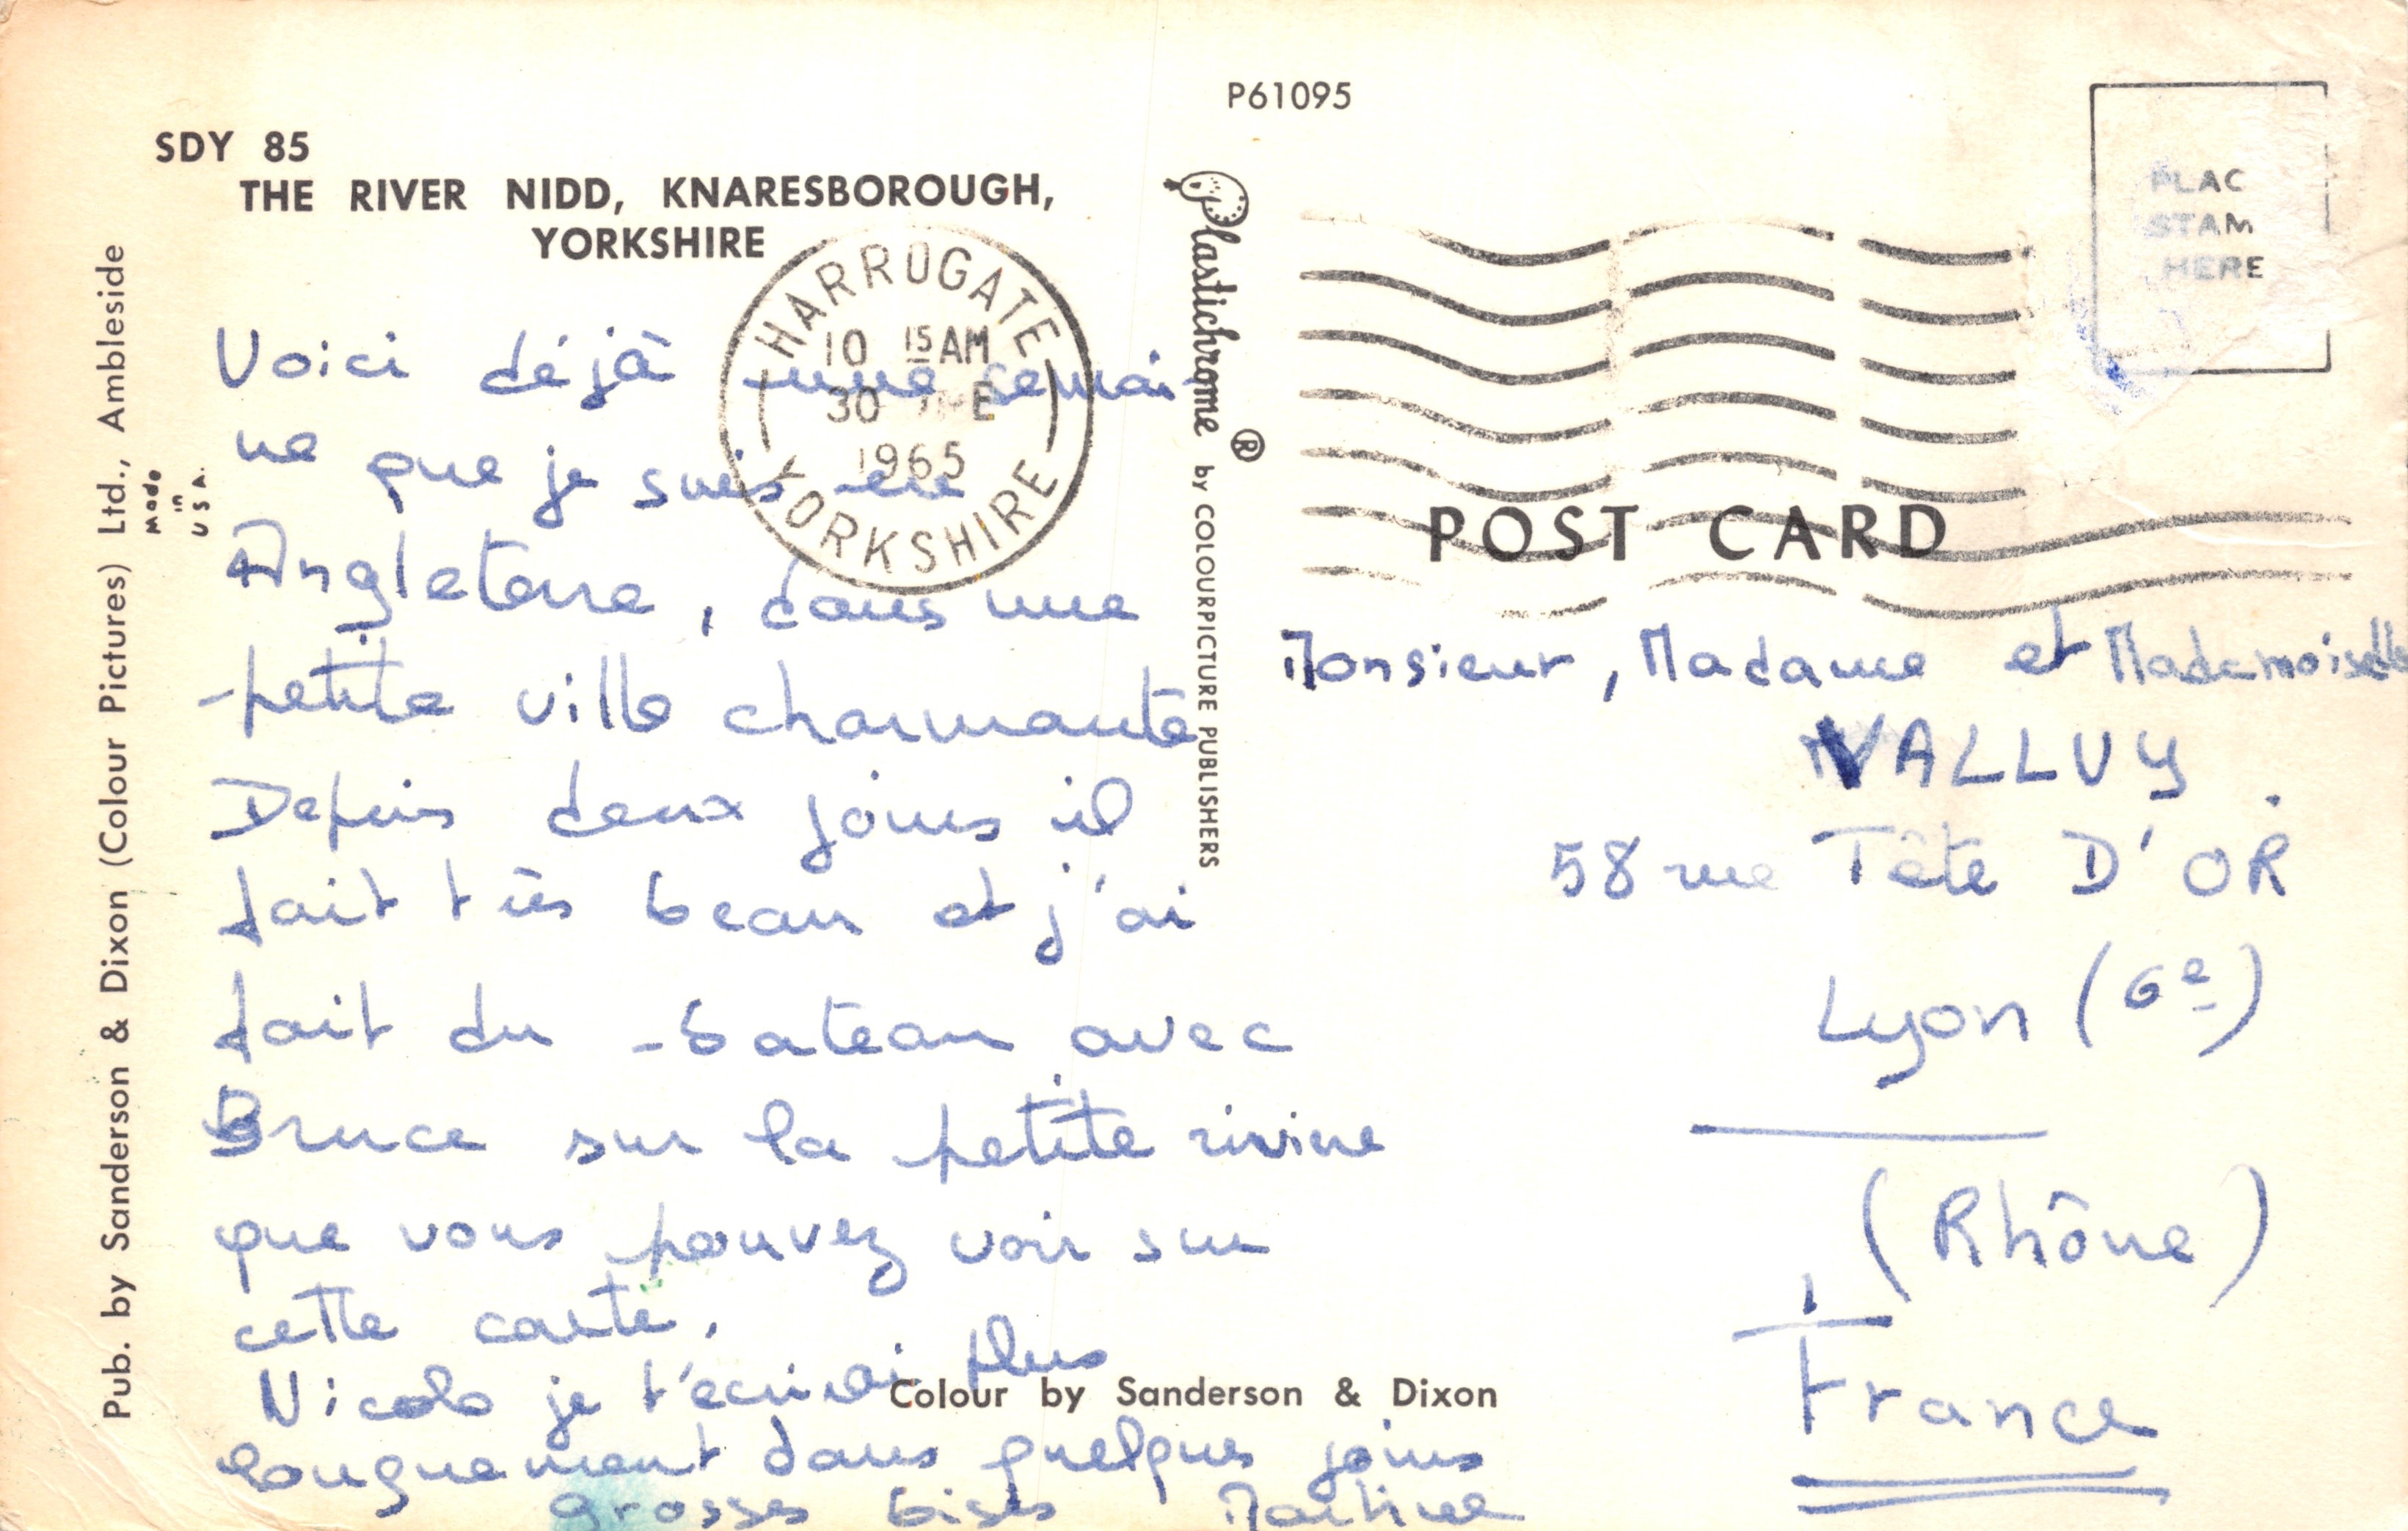 P61095
SDY 85
THE RIVER NIDD, KNARESBOROUGH,
YORKSHIRE
HARROGATE
10 15 AM
30 E
1965
YORKSHIRE
Voici déjà une semai-
ne que je suis en
Angleterre, dans une
petite ville charmante
Depuis deux jours il
fait très beau et j'ai
fait du bateau avec
Bruce sur la petite rivière
que vous pouvez voir sur
cette carte.
Nicole je t'écrirai plus
longuement dans quelques jours
grosses bises Martine
Pub. by Sanderson & Dixon (Colour Pictures) Ltd., Ambleside
Made
in
USA.
Plastichrome ® by COLOURPICTURE PUBLISHERS
Colour by Sanderson & Dixon
PLAC
STAM
HERE
POST CARD
Monsieur, Madame et Mademoiselle
VALLUY.
58 rue Tête D'OR
Lyon (6e)
(Rhône)
France